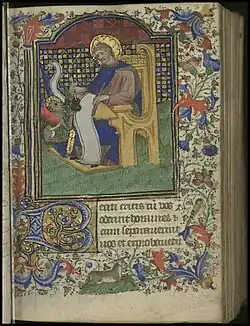 Beati eritis cū vos
oderint homines ⁊
cum separaverint
vos et exprobraverīt